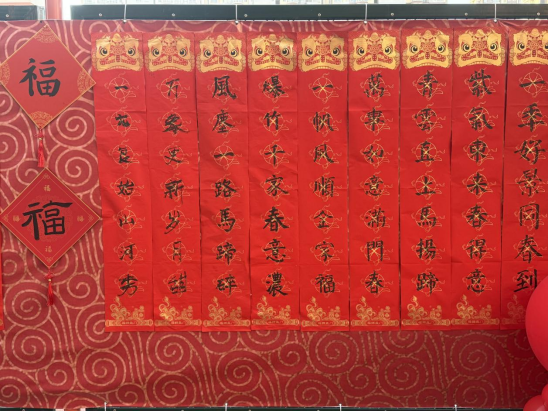 一年好景同春到
紫氣東來春得意
青雲直上馬揚蹄
萬事如意滿門春
一帆風順全家福
爆竹千家春意濃
風塵一路馬蹄
万象更新岁月
一元复始山河秀
福
福